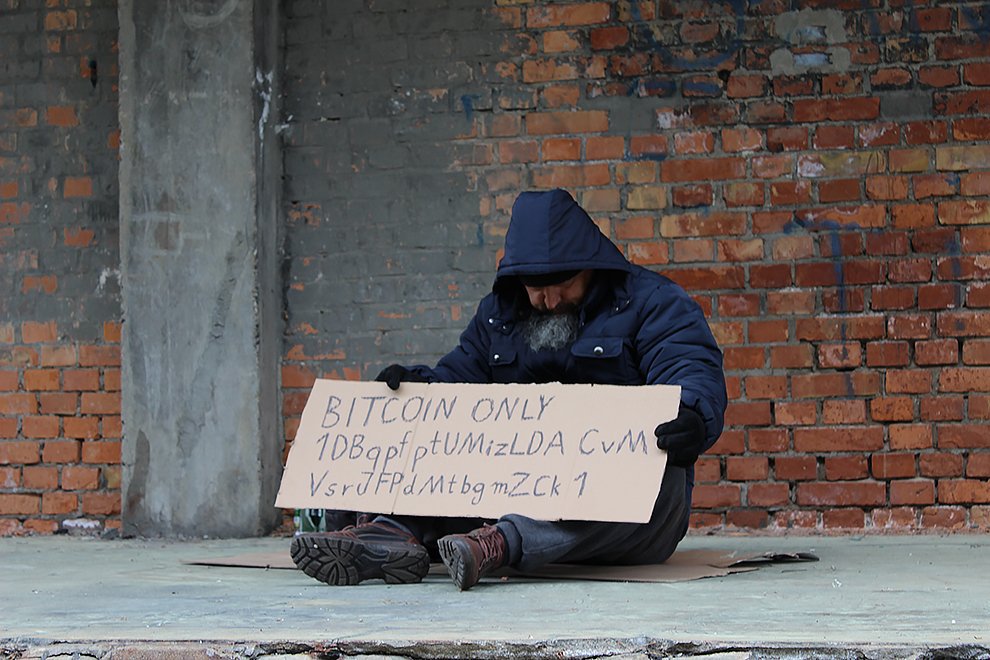 BITCOIN ONLY
1DBqpfptUMizLDACvM
VsrJFPdMtbgmZCk1